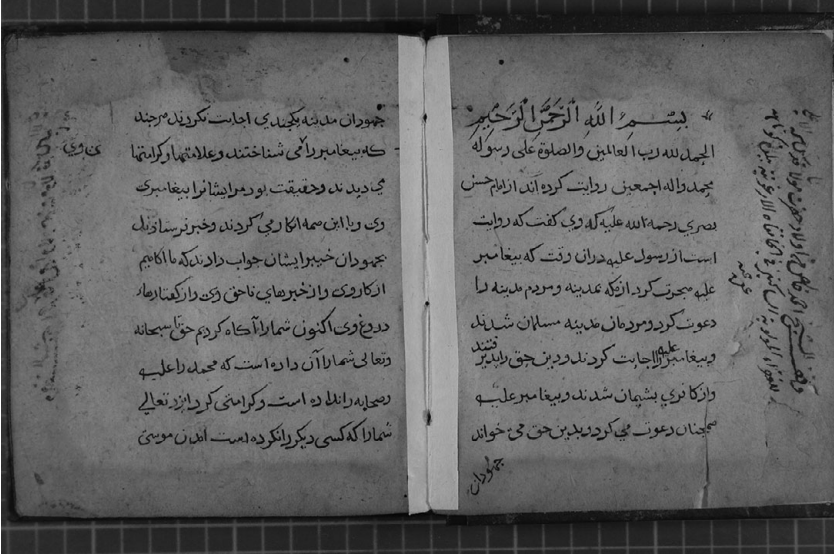 بسم الله الرحمن الرحیم
الحمد لله رب العالمین والصلوة علی رسوله
محمد واله اجمعین روایت کرده اند از امام حسن
بصری رحمة الله علیه که وی کفت که روایت
است از رسول علیه دران وقت که بیغامبر
علیه هجرت کرد از مکه بمدینه و مردم مدینه را
دعوت کرد و مردمان مدینه مسلمان شدند
وبیغامبر علیه را اجابت کردند ودین حق را بذیرفتند
واز کافری بشیمان شدند و بیغامبر علیه
همچنان دعوت می کرد وبدین حق می خواند
جهودان
جهودان مدینه یکجندی اجابت نکردند هرجند
که بیغامبر را می شناختند وعلامتها وکرامتها
می دیدند وحقیقت بود مرایشانرا بیغامبری
وی وبا این همه انکار می کردند وخبر فرستادند
بجهودان خیبر ایشان جواب دادند که ما اکاهیم
از کار وی واز خبرهای ناحق وی واز کفتارهاء
دروغ وی اکنون شمارا آکاه کردیم حق سبحانه
وتعالی شمارا آن داده است که محمد را علیه
وصحابه را نداده است وکرامتی کرد ایزد تعالی
شمارا که کسی دیکر را نکرده است اندن موسی